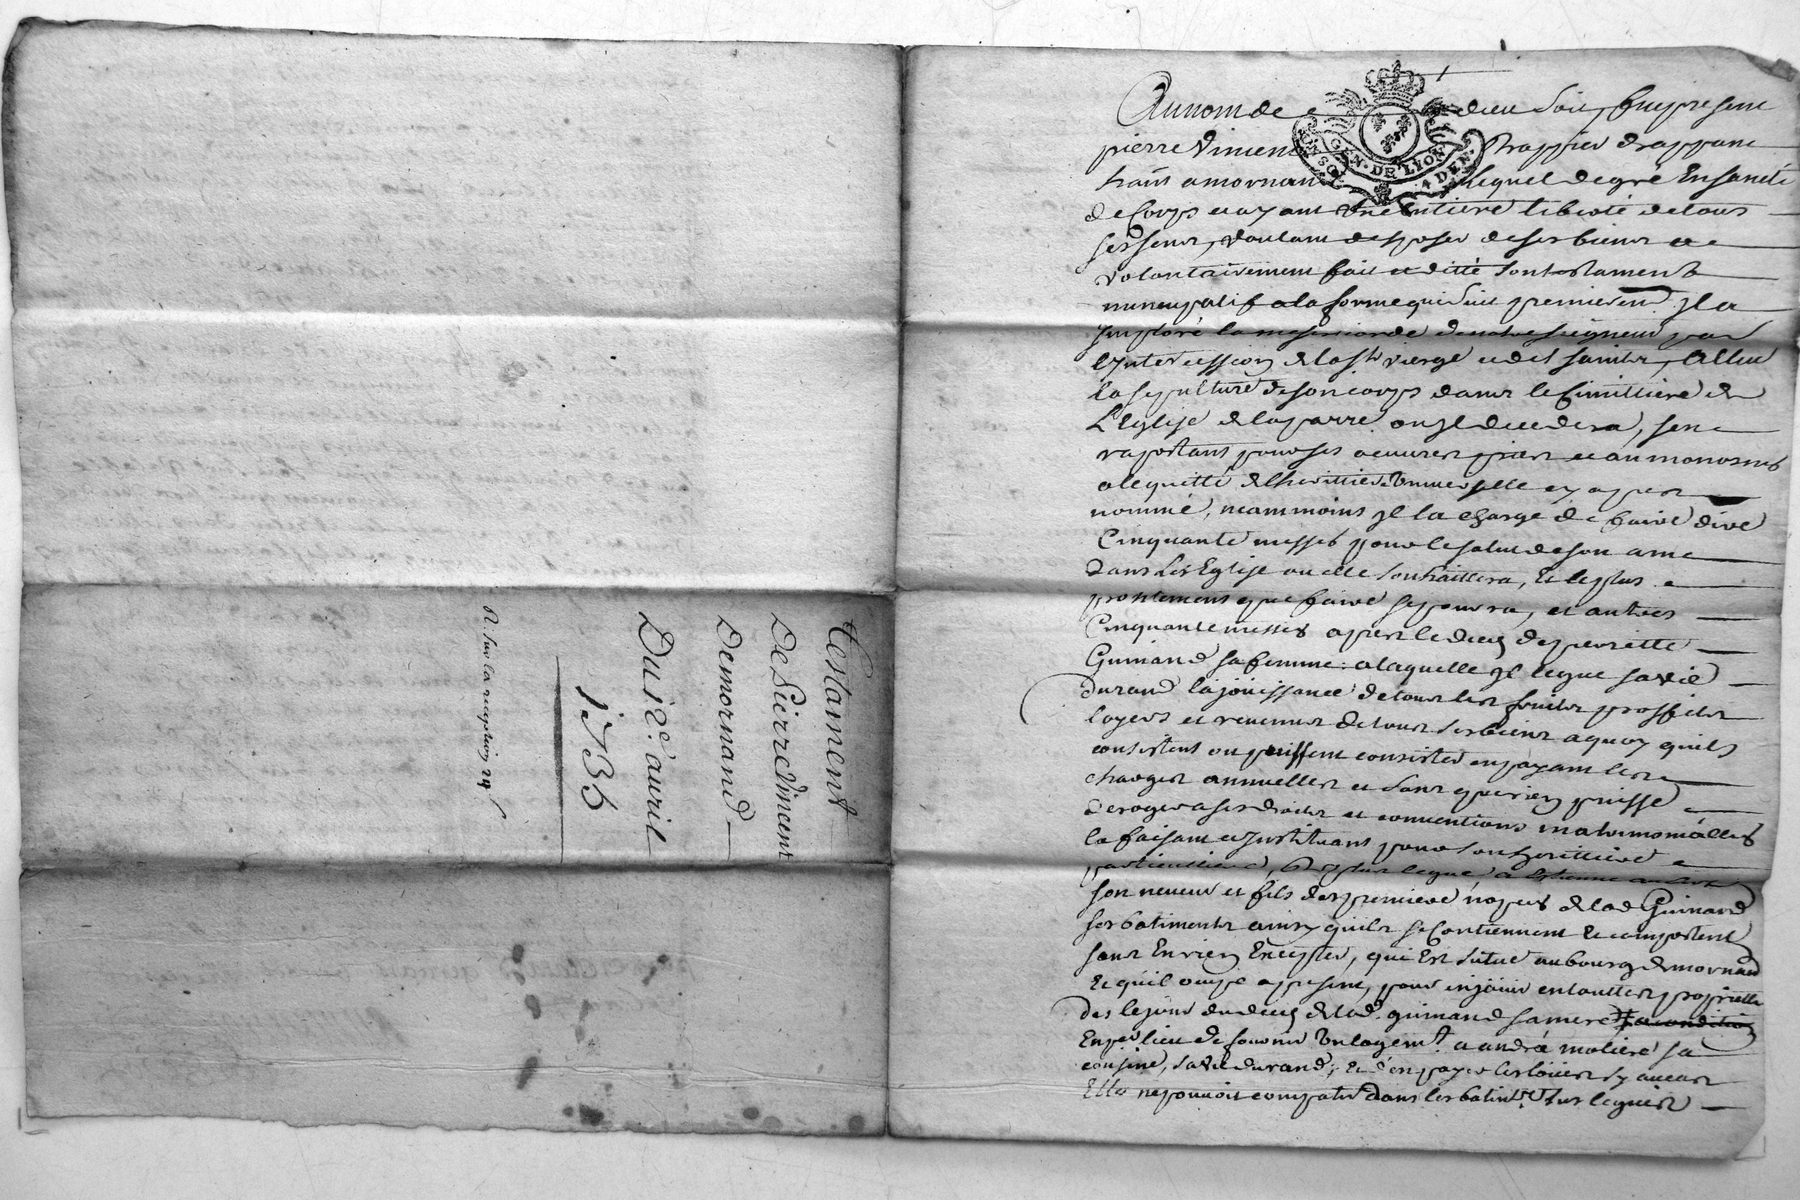 Testament
De Pierre Vincent
De mornand
Du 12e. auril
1735
R. sur la reception 24s
GEN. DE LYON
4 DEN.
Au nom de dieu soit, fut present
pierre Vincent drappier drappant
hant a mornant lequel de gre En santé
de Corps et ayant Une Entiere liberté de tous
ses sens, Voulant disposer de ses biens a
volontairement fait et ditté son testament
nuncupatif a la forme qui suit premierem.t Jl a
Jmploré la misericorde de notre seigneur par
l'Intercession de la ste vierge et des saints, Elleu
la sepulture de son corps dans le Cimittiere de
L'Eglise de la parre. ou Jl decedera, sen
raportant pour ses oeuvres pies et aumonosnes
a lequitté de lherittiere Universelle cy apres
nommé, neammoins Jl la charge de faire dire
Cinquante messes pour le salut de son ame
dans les Eglise ou elle souhaittera, Et le plus
prontement que faire se pourra, et autres
Cinquante messes apres le deces de pierrette
Guinand sa femme. a laquelle Jl legue sa vie
durand la jouissance de tous les fruits proffits
loyers et revenus de tous ses biens a quoy quils
consistent ou puissent consister en payant les
charges annuelles et sans que rien puisse
deroger a ses droits et conventions matrimonialles
la faisant et Jnstituant pour son herittiere
particulliere, Et plus legue a Estienne
son neveu et fils des premiere nopces de lad. Guinand
ses batiments ainsy quils se Contiennent Et comportent
sans En rien Excepter, qui Est situé au bourg de mornand
Et quil occupe a present, pour en jouir en toutte propriette
des le jour du deces de lad. guinand sa mere a condition
En par lieu de fournir Un logem.t a andrée moliere sa
cousine, sa vie durand, Et d'en payer les loüers sy au cas
Elle ne pouvoit compatir dans les batim.ts sus legues